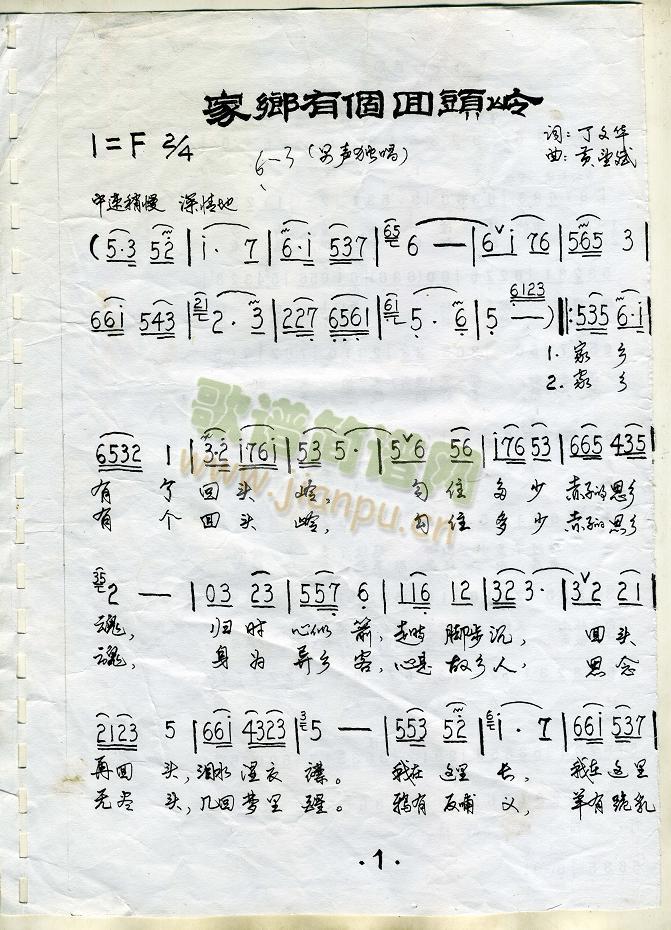 家鄉有個囬頭岭
1=F 2/4
6-3 (男声独唱)
词: 丁文华
曲: 黄
中速稍慢 深情地
(5·3 52 | i· 7 | 6·i 537 | 65 6 — | 6 ∨ i 76 | 565 3 |
66i 543 | 21 2· 3 | 227 6561 | 61 5· 6 | 5 — 6123 ) ‖: 535 6·i |
1. 家 乡
2. 家 乡
6532 1 | 3·2 i76i | 53 5· | 5 ∨ 6 56 | i76 53 | 665 435 |
有 个 回 头 岭, 勾 住 多 少 赤子的 思乡
有 个 回 头 岭, 勾 住 多 少 赤子的 思乡
35 2 — | 03 23 | 557 6 | 116 12 | 32 3· | 3 ∨ 2 21 |
魂, 归 时 心似 箭, 走时 脚步 沉, 回头
魂, 身 为 异乡 客, 心是 故乡 人, 思念
2123 5 | 66i 4323 | 3 5 — | 553 52 | 6 i· 7 | 66i 537 |
再回 头, 泪水 湿衣 襟。 我在 这里 长, 我在 这里
无尽 头, 几回 梦里 醒。 鸦有 反哺 义, 羊有 跪乳
·1·
歌谱简谱网
www.jianpu.cn